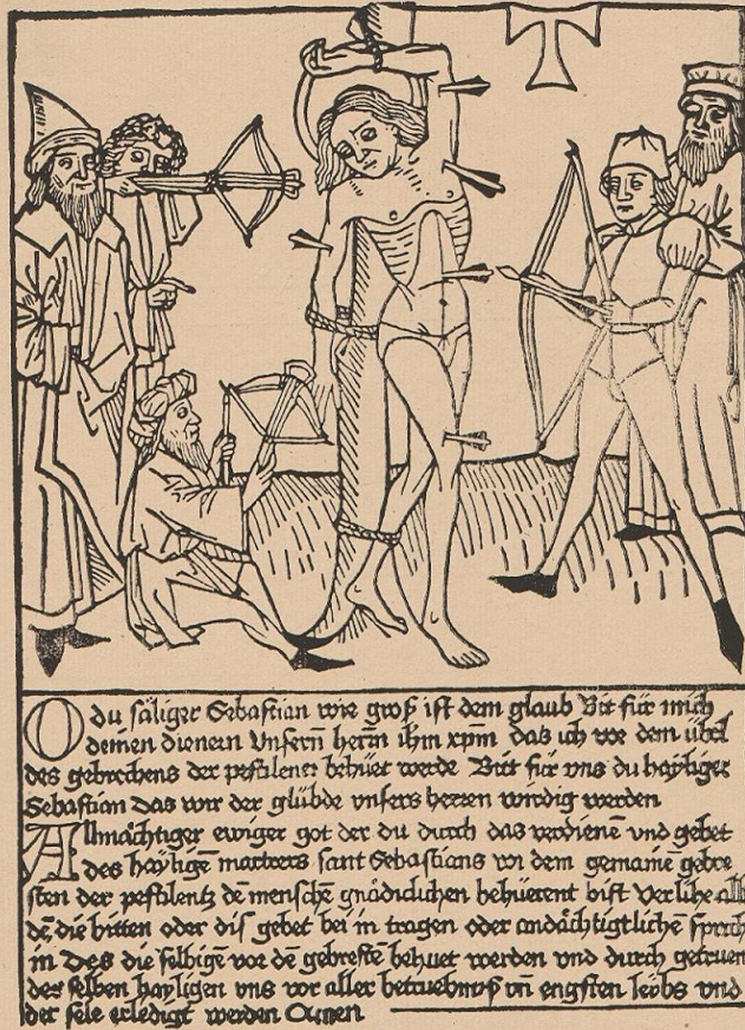 O du säliger Sebastian wie groß ist dein glaub Bit für mich
deinen dienern Unsern̄ herr̄n ihm xp̄m das ich vor dem übel
des gebrechens der pestilentz behüet werde Bitt für vns du hayliger
Sebastian Das wir der glübde vnsers herren wirdig werden
Allmächtiger ewiger got der du durch das verdienē vnd gebet
des haylige̅ martrers sant Sebastians vor dem gemainē gebre
sten der pestilentz dē menschē gnädiclichen behüetent bist Verlihe all
dē die bitten oder dis gebet bei in tragen oder andächtigtlichē sprech
in Des die selbigē vor dē gebrestē behuet werden vnd durch getruen
des selben hayligen vns vor aller betruebnuß vn̄ engsten leibs vnd
der sele erledigt werden Amen